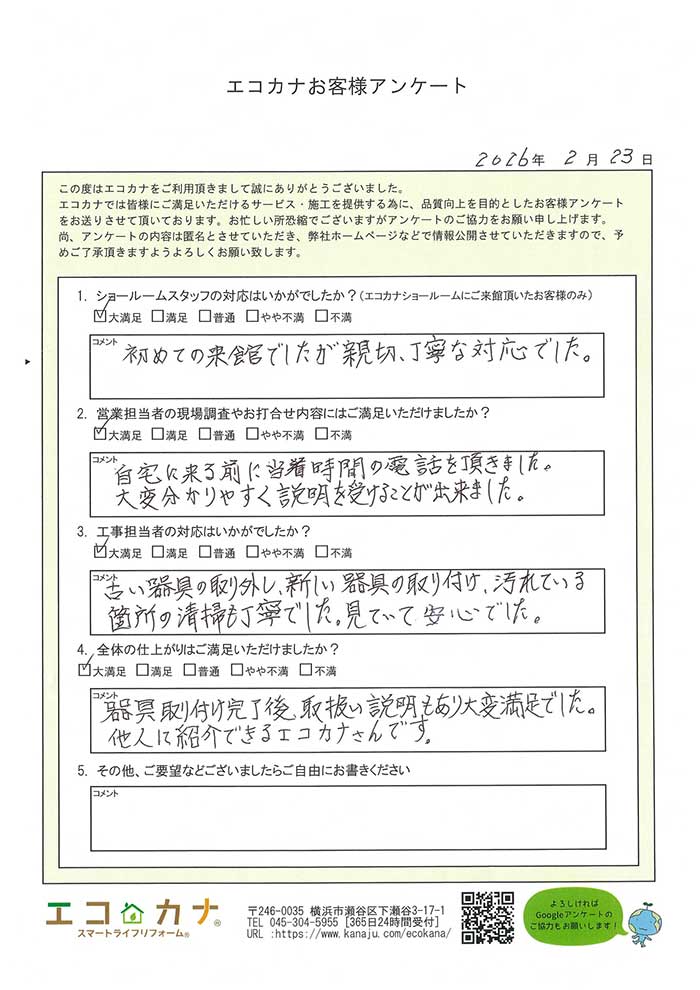 エコカナお客様アンケート
2026年 2月 23日
この度はエコカナをご利用頂きまして誠にありがとうございました。
エコカナでは皆様にご満足いただけるサービス・施工を提供する為に、品質向上を目的としたお客様アンケート
をお送りさせて頂いております。お忙しい所恐縮でございますがアンケートのご協力をお願い申し上げます。
尚、アンケートの内容は匿名とさせていただき、弊社ホームページなどで情報公開させていただきますので、予
めご了承頂きますようよろしくお願い致します。
1. ショールームスタッフの対応はいかがでしたか？(エコカナショールームにご来館頂いたお客様のみ)
☑大満足 □満足 □普通 □やや不満 □不満
コメント
初めての来館でしたが親切、丁寧な対応でした。
2. 営業担当者の現場調査やお打合せ内容にはご満足いただけましたか？
☑大満足 □満足 □普通 □やや不満 □不満
コメント
自宅に来る前に当着時間の電話を頂きました。
大変分かりやすく説明を受けることが出来ました。
3. 工事担当者の対応はいかがでしたか？
☑大満足 □満足 □普通 □やや不満 □不満
コメント
古い器具の取り外し、新しい器具の取り付け、汚れている
箇所の清掃も丁寧でした。見ていて安心でした。
4. 全体の仕上がりはご満足いただけましたか？
☑大満足 □満足 □普通 □やや不満 □不満
コメント
器具取り付け完了後、取扱い説明もあり大変満足でした。
他人に紹介できるエコカナさんです。
5. その他、ご要望などございましたらご自由にお書きください
コメント
エコカナ®
スマートライフリフォーム®
〒246-0035 横浜市瀬谷区下瀬谷3-17-1
TEL 045-304-5955 [365日24時間受付]
URL :https://www.kanaju.com/ecokana/
よろしければ
Googleアンケートの
ご協力もお願いします！